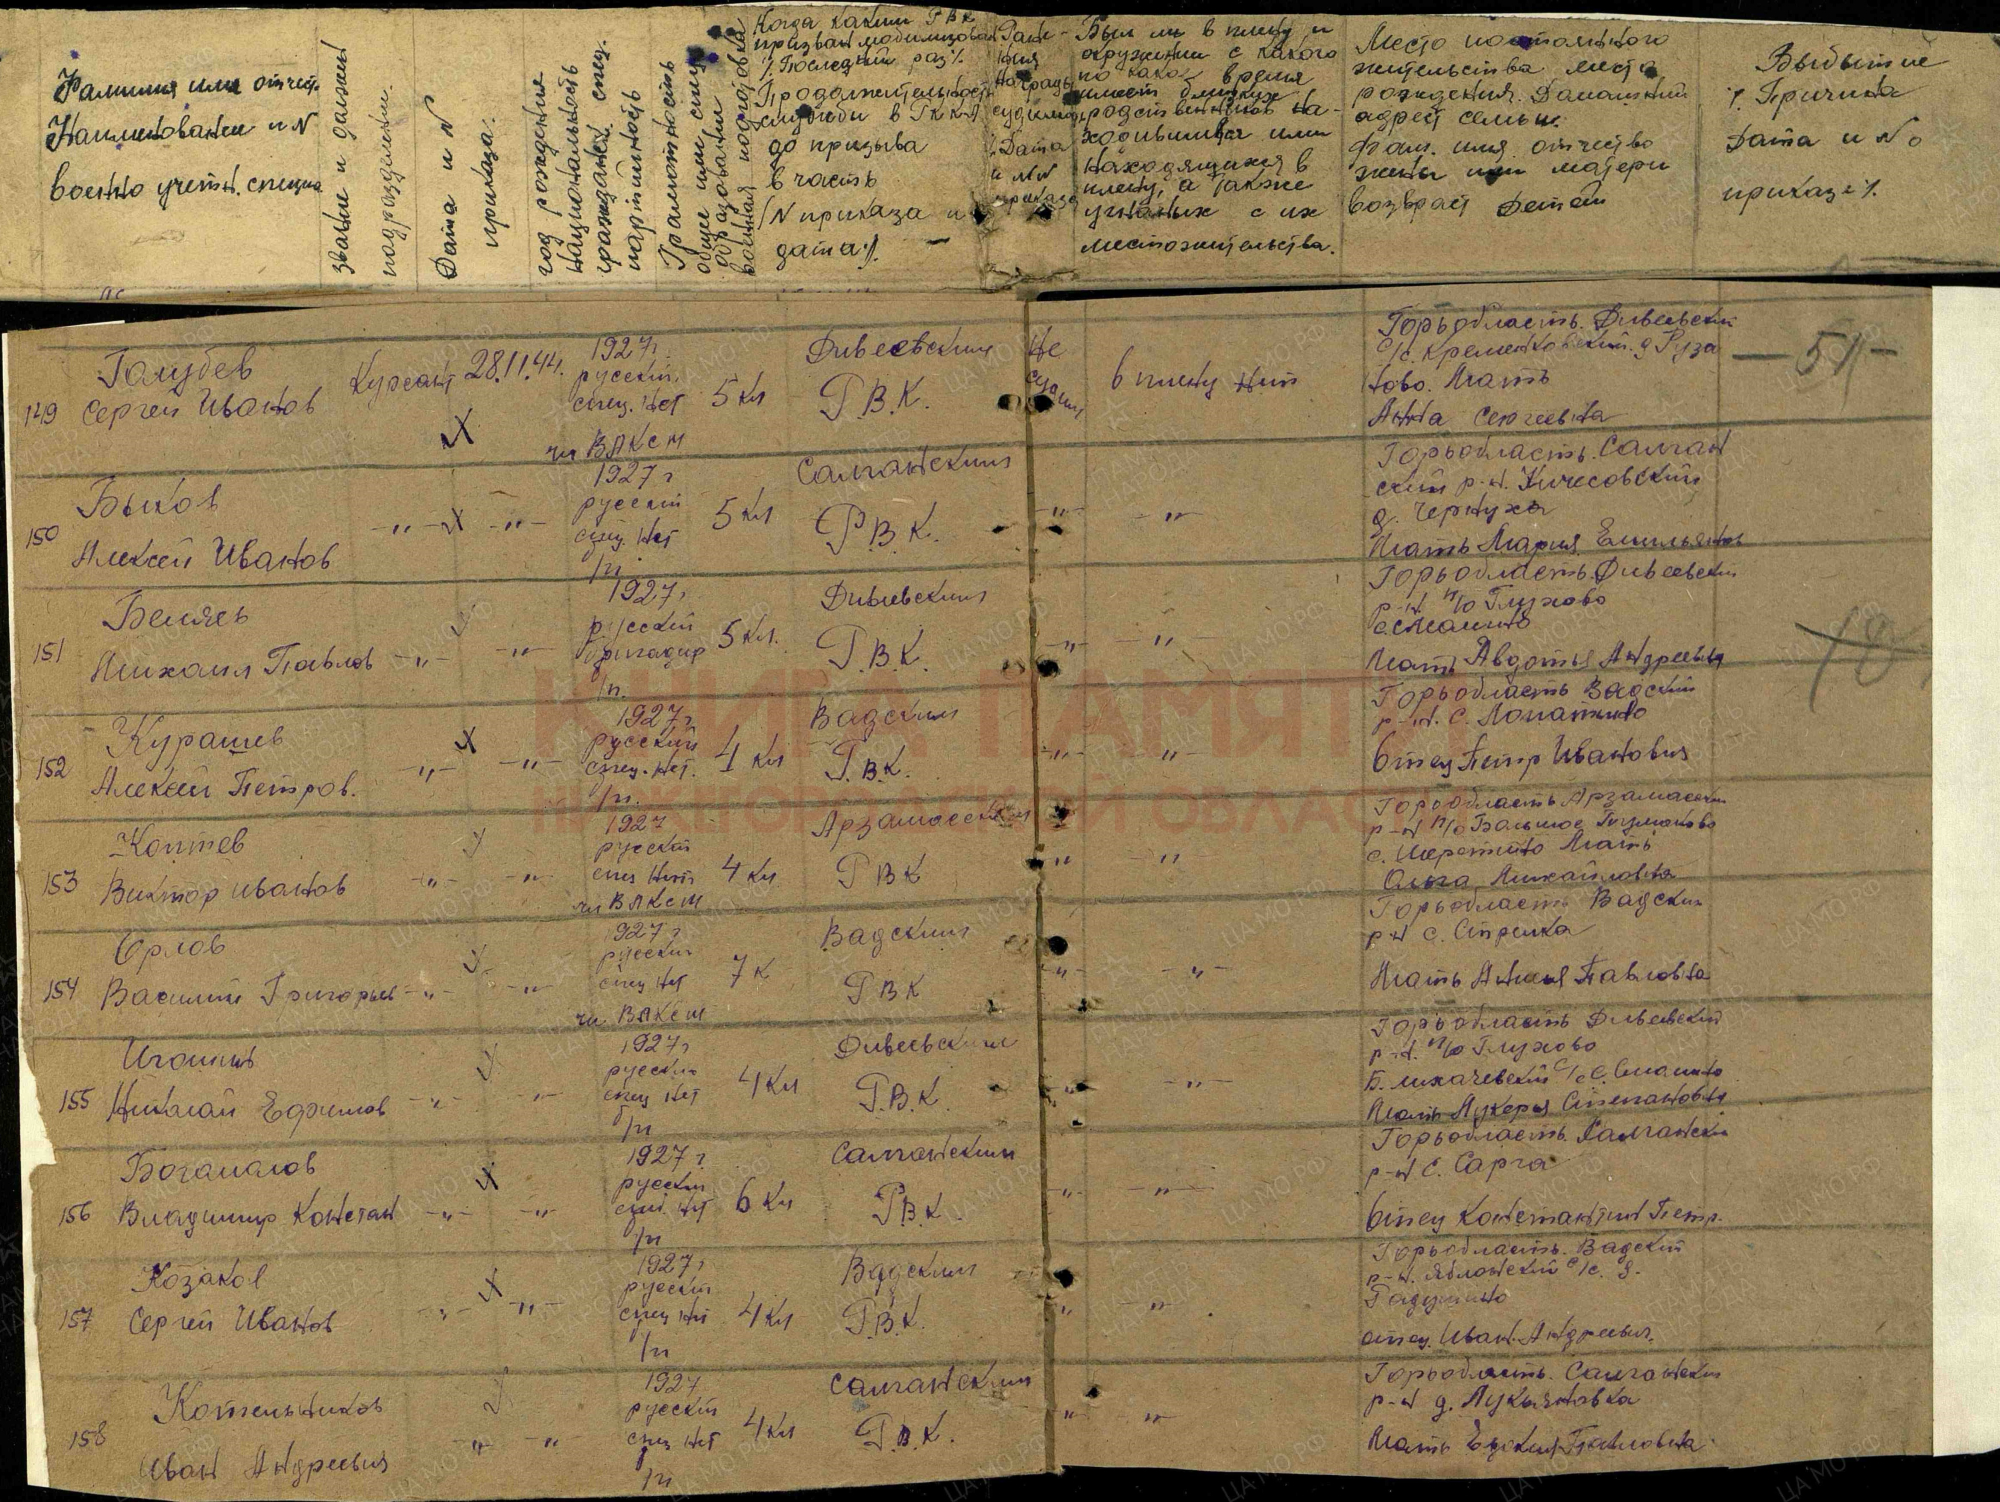 Фамилия имя отчест.
Наименование и N
военно учетн. специа
звание и должн
подразделен.
Дата и N
приказа:
год рождения
национальность
граждансk. спец.
партийность
Грамотность
общее или спец
образовании
военная подготовка
Когда каким РВК
призван мобилизован
/. Последний раз/.
Продолжительность
службы в РККА
до призыва
в часть
/N приказа и
дата/.
Ране-
ния
Награды
судим.
/. Дата
и NN
приказа
Был ли в плену и
окружении с какого
по како- время
имеет близких
родственников на-
ходившихся или
находящихся в
плену, а также
угнаных с их
местожительства.
Место постоянного
жительства место
рождения. Домашний
адрес семьи.
Фам. имя отчество
жены или матери
возвраст детей
Выбытие
/. Причина
дата и No
приказа/.
149 Голубев
Сергей Иванов
Курсант 28.11.44.
1927г.
русский
спец. нет
чл ВЛКСМ
5 кл
Дивеевским
Р.В.К.
Не
судим
в плену нет
Горьобласть. Дивеевский
с/с. Кременковский. д Руза
ново. Мать
Анна Сергеевна
— 51 —
150 Быков
Алексей Иванов
—„— —„—
1927 г
русский
спец. нет
б/п
5 кл
Салганским
Р.В.К.
—„— —„—
Горьобласть. Салган
ский р-н. Кичесовский
д. Чернуха
Мать Мария Емильянов
151 Беляев
Михаил Павлов
—„— —„—
1927г
русский
бригадир
б/п.
5 кл.
Дивеевским
Р.В.К.
„ —„—
Горьобласть. Дивеевский
р-н п/о Глухово
с. Смолино
Мать Авдотья Андреевна
18
152 Курашев
Алексей Петров.
—„— —„—
1927г
русский
спец. нет.
б/п.
4 кл
Вадским
Р.В.К.
—„— —„—
Горьобласть Вадский
р-н. с. Лопатино
Отец Петр Иванович
153 Коптев
Виктор Иванов
—„— —„—
1927
русский
спец нет
чл ВЛКСМ
4 кл
Арзамасским
РВК
„ —„—
Горьобласть Арзамасский
р-н п/о Большое Туманово
с. Шерстино Мать
Ольга Михайловна
154 Орлов
Василий Григорьев
—„— —„—
1927г
русский
спец нет
чл ВЛКСМ
7 к
Вадским
РВК
—„— —„—
Горьобласть Вадский
р-н с. Стрелка
Мать Павловна
155 Игошин
Николай Ефимов
—„— —„—
1927г
русский
спец нет
б/п
4 кл
Дивеевским
Р.В.К.
„ —„—
Горьобласть Дивеевский
р-н. п/о Глухово
Б. Лихачевский с/с с. Смолино
Мать Лукерья Степановна
156 Богамолов
Владимир Констан
—„— —„—
1927г
русский
спец. нет
б/п
6 кл
Салганским
Р.В.К.
—„— —„—
Горьобласть. Салгански
р-н с. Сарга
Отец Константин Петр.
157 Козаков
Сергей Иванов
—„— —„—
1927г
русский
спец нет
б/п
4 кл
Вадским
Р.В.К.
„ —„—
Горьобласть. Вадский
р-н. Яблонский с/с. д.
отец. Иван. Андреевич.
158 Котельников
Иван Андреевич
„ —„—
1927
русский
спец нет
б/п
4 кл
Салганским
Р.В.К.
„ —„—
Горьобласть. Салгански
р-н д. Лукьяновка
Мать Павловна
КНИГА ПАМЯТИ
НИЖЕГОРОДСКОЙ ОБЛАСТИ